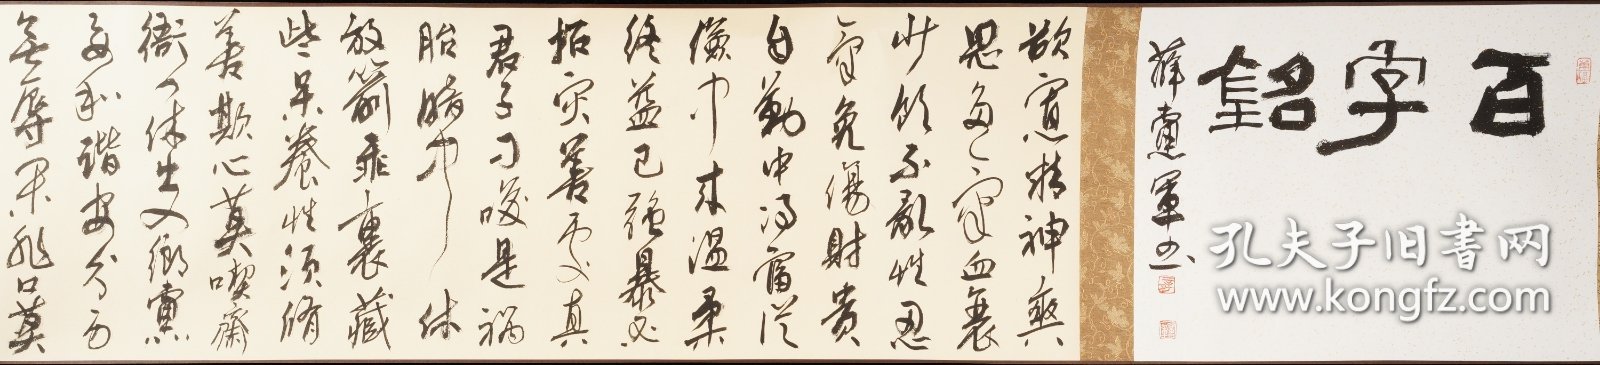 百字銘
薛軍书
欲寡精神爽
思多氣血衰
少飲不亂性忍
氣免傷財貴
自勤中得富從
儉中來溫柔
終益己強暴必
招災善處真
君子刁唆是禍
胎暗中休
放箭乖裏藏
些呆養性須脩
善欺心莫喫齋
衙門休出入鄉黨
要和諧安分身
無辱閑非口莫
孔夫子旧书网
www.kongfz.com